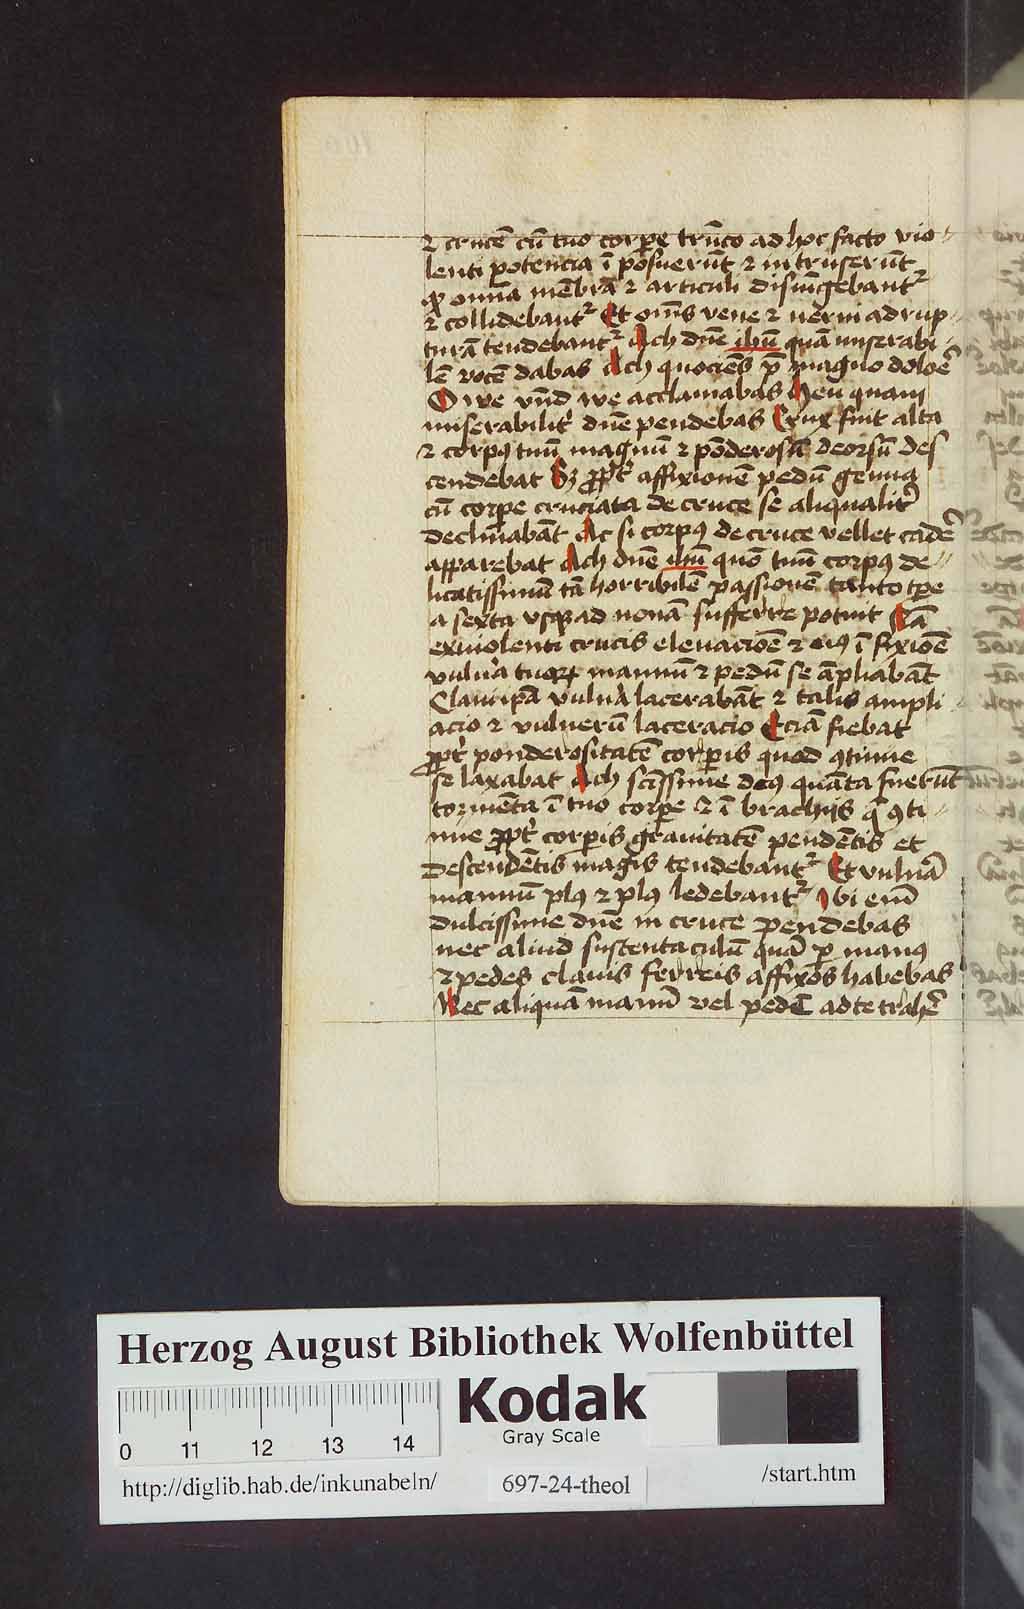 ⁊ crucē cū tuo corꝑe trūco ad hoc facto vio
lenti potencia ī posuerūt ⁊ intruserūt
ꝙ omnia mēbra ⁊ articuli disiūgebantᷣ
⁊ collidebantᷣ Et om̄s vene ⁊ nerui ad rup
turā tendebantᷣ Ach dn̄e ihū quā miserabi
lē vocē dabas Ach quociēs p̄ magno doloē
O we vn̄d we acclamabas Heu quam
miserabilit᷑ dn̄e pendebas Crux fuit alta
⁊ corpꝰ tuū magnū ⁊ pōderosū deorsū des
cendebat Sꝫ ꝓpt᷑ affixionē pedū genua
cū corꝑe cruciata de cruce se aliqualit᷑
declinabāt Ac si corpꝰ de cruce vellet cadē
apparebat Ach dn̄e ihū quō tuū corpꝰ de
licatissimū tā horribilē passionē tanto tꝑe
a sexta vsqꝫ ad nonā sufferre potuit Nā
ex violenti crucis eleuacōe ⁊ eiꝰ ī fixiōe
vuln̄a tuoꝝ manuū ⁊ pedū se āpliabāt
Claui ip̄a vuln̄a lacerabāt ⁊ talis ampli
acio ⁊ vulnerū laceracio Eciā fiebat
ꝓpt᷑ ponderositatē corꝑis quod ꝯtinue
se laxabat Ach scīssime deꝰ quāta fuerūt
tormēta ī tuo corꝑe ⁊ ī brachijs q̄ ꝯti
nue ꝓpt᷑ corꝑis grauitatē pendētis et
descendētis magis tendebantᷣ Et vuln̄a
manuū plꝰ ⁊ plꝰ ledebantᷣ Vbi em̄
dulcissime dn̄e in cruce pendebas
nec aliud sustentaculū quā p̄ manꝰ
⁊ pedes clauis ferreis affixos habebas
Nec aliquā manū vel pedē ad te trahē
Herzog August Bibliothek Wolfenbüttel
Kodak
Gray Scale
0 11 12 13 14
http://diglib.hab.de/inkunabeln/
697-24-theol
/start.htm